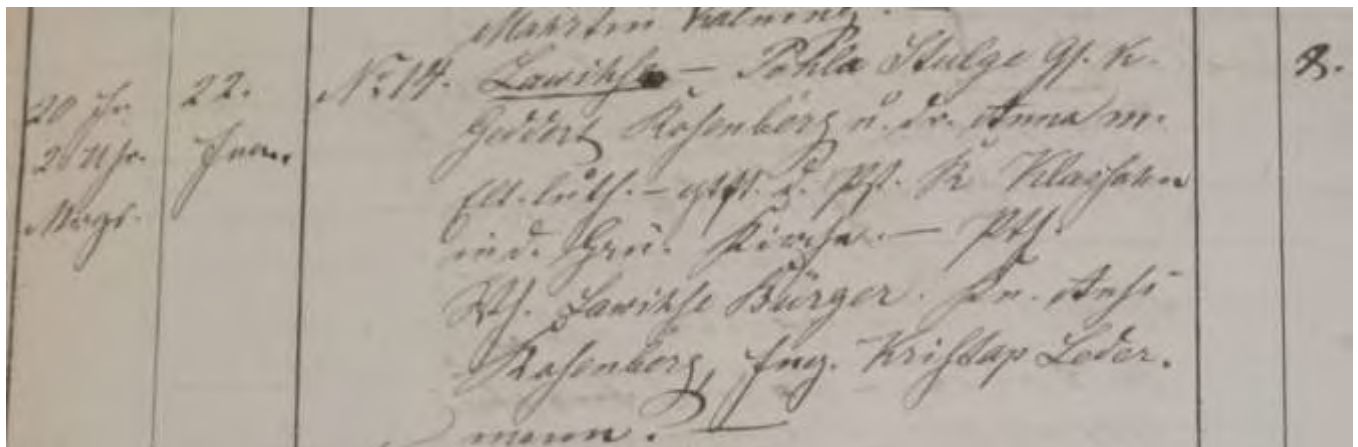 Marrtin Kalning.
20 Jan.
2 Uhr.
Mrgs.
22.
Jan.
No 14. Lawihse — Pohla Stulge Gs. K.
Geddert Rosenberg u. dr. Anna m.
Ell. luth. — gtft. d. Pst. K. Klassohn
in d. Grü. Kirche. — Ptt.
Wf. Lawihse Bürger. Fr. Anhs
Rosenberg, Jng. Kristap Leder-
mann.
8.